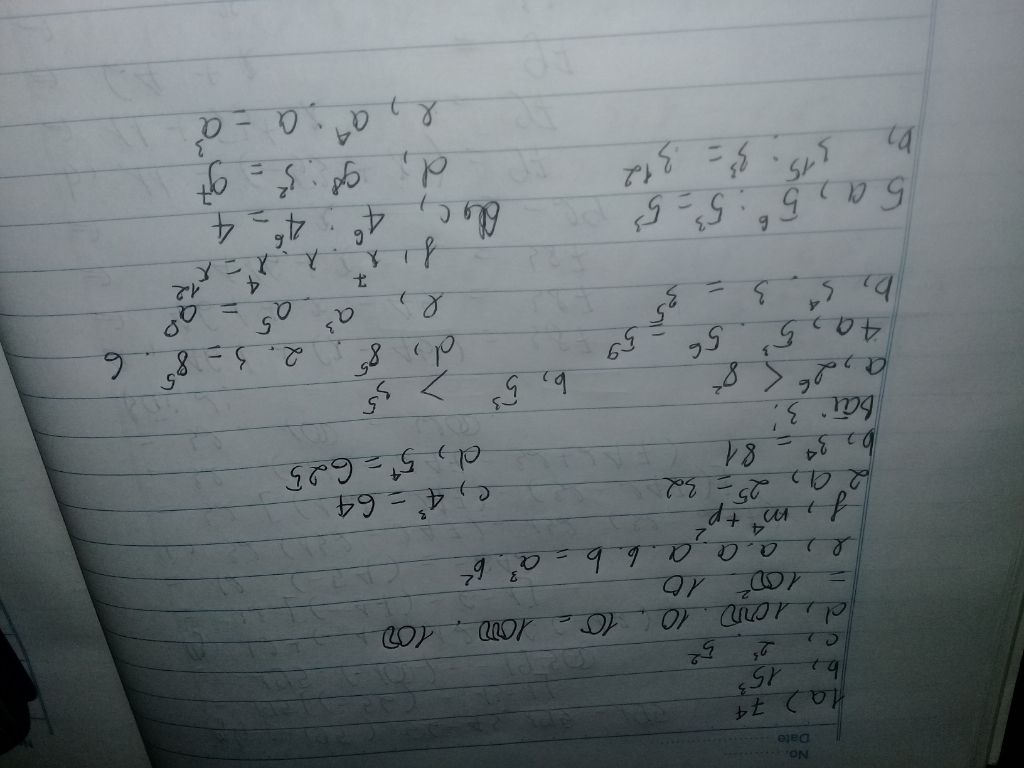 No. ..........
Date ..........
1a) 7⁴
b, 15³
c, 2³ . 5²
d, 1000 . 10 . 10 = 1000 . 100
= 100² . 10
e, a . a . a . b . b = a³ . b²
f, m⁴ + p²
2 a, 2⁵ = 32 c, 4³ = 64
b, 3⁴ = 81 d, 5⁴ = 625
bài 3:
a, 2⁶ < 8² b, 5³ > 3⁵
4 a, 5³ . 5⁶ = 5⁹ d, 8⁵ . 2 . 3 = 8⁵ . 6
b, 3⁴ . 3 = 3⁵ e, a³ . a⁵ = a⁸
f, x⁷ . x . x⁴ = x¹²
5 a, 5⁶ : 5³ = 5³ c, 4⁶ : 4⁶ = 4
b, 3¹⁵ : 3³ = 3¹² d, 9⁸ : 3² = 9⁷
e, a⁴ : a = a³